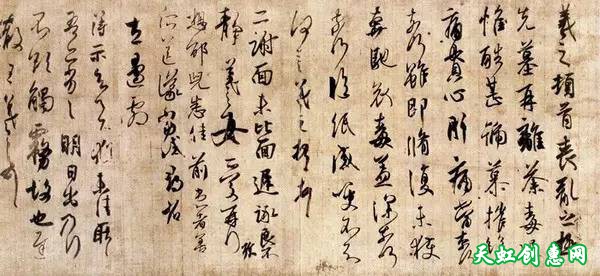 羲之頓首喪亂之極
先墓再離荼毒
惟酷甚號慕摧
痛貫心肝痛當奈
奈何雖即脩復未獲
奔馳哀毒益深奈何
奈何臨紙感哽不知
何言羲之頓首
二謝面未比面遲詠良不
靜羲之女愛再拜
想邵兒悉佳前患者善
所送議當試尋省
左邊劇
得示知足下猶未佳耿
吾亦劣劣明日出乃行
不欲觸霧故也遲
散王羲之頓首
天虹创意网